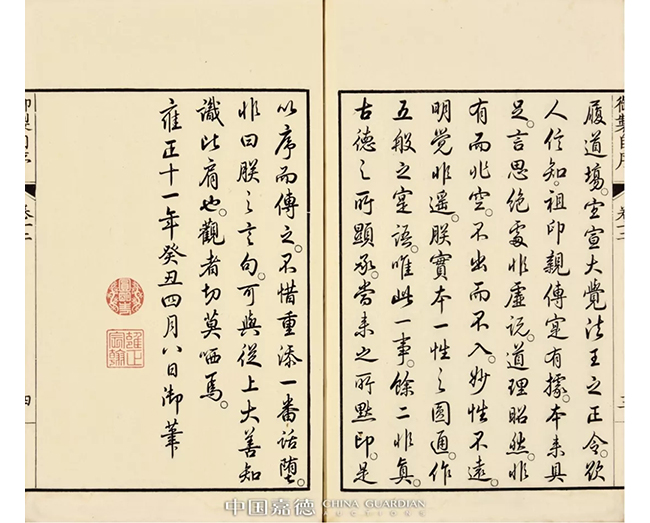 履道場。全宣大覺法王之正令。欲
人信知。祖印親傳。寔有據。本來具
足。言思絶處非虚説。道理昭然。非
有而非空。不出而不入。妙性不遠。
明覺非遥。朕實本一性之圓通。作
五般之寔語。唯此一事。餘二非真。
古德之所顯承。當來之所點印。是
以序而傳之。不惜重添一番話墮。
非曰朕之言句。可與從上大善知
識比肩也。觀者切莫哂焉。
雍正十一年癸丑四月八日御筆
雍正
宸翰
御製自序
卷十二
三
四
中国嘉德 CHINA GUARDIAN
AUCTIONS